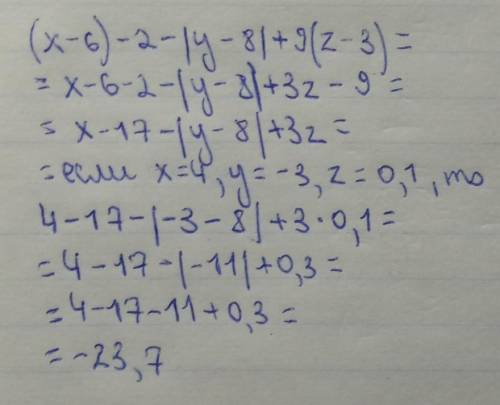 (x-6)-2-|y-8|+9(z-3)=
= x-6-2-|y-8|+3z-9=
= x-17-|y-8|+3z=
=если x=4, y=-3, z=0,1, то
4-17-|-3-8|+3·0,1=
=4-17-|-11|+0,3=
=4-17-11+0,3=
=-23,7